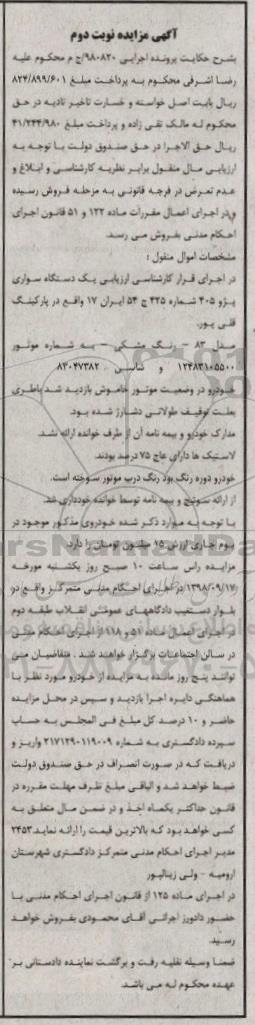 آگهی مزایده نوبت دوم
بشرح حکایت پرونده اجرایی ۹۸۰۸۲۰/ج م محکوم علیه
رضا اشرفی محکوم به پرداخت مبلغ ۸۲۴/۸۹۹/۶۰۱
ریال بابت اصل خواسته و خسارت تاخیر تادیه در حق
محکوم له مالک تقی زاده و پرداخت مبلغ ۴۱/۲۴۴/۹۸۰
ریال حق الاجرا در حق صندوق دولت با توجه به
ارزیابی مال منقول برابر نظریه کارشناسی و ابلاغ و
عدم تعرض در فرجه قانونی به مرحله فروش رسیده
و در اجرای اعمال مقررات ماده ۱۲۲ و ۵۱ قانون اجرای
احکام مدنی بفروش می رسد.
مشخصات اموال منقول :
در اجرای قرار کارشناسی ارزیابی یک دستگاه سواری
پژو ۴۰۵ شماره ۴۲۵ ج ۵۴ ایران ۱۷ واقع در پارکینگ
قلی پور.
مدل ۸۳ - رنگ مشکی - به شماره موتور
۱۲۴۸۳۱۰۵۵۰۰ و شاسی ۸۳۰۴۷۳۸۲
خودرو در وضعیت موتور خاموش بازدید شد باطری
بعلت توقیف طولانی دشارژ شده بود.
مدارک خودرو و بیمه نامه آن از طرف خوانده ارائه نشد.
لاستیک ها دارای عاج ۷۵ درصد بودند.
خودرو دوره رنگ بود رنگ درب موتور سوخته است.
از ارائه سوئیچ و بیمه نامه توسط خوانده خودداری شد.
با توجه به موارد ذکر شده خودروی مذکور موجود در
بوم جاری ارزش ۱۵ میلیون تومان را دارد.
مزایده راس ساعت ۱۰ صبح روز یکشنبه مورخه
۱۳۹۸/۰۹/۱۷ در اجرای احکام مدنی متمرکز واقع در
بلوار دستغیب دادگاههای عمومی انقلاب طبقه دوم
در اجرای اعمال ماده ۵۱ و ۱۱۸ از اجرای احکام مدنی
در سالن اجتماعات برگزار خواهد شد . متقاضیان می
توانند پنج روز مانده به مزایده از خودرو مورد نظر با
هماهنگی دایره اجرا بازدید و سپس در محل مزایده
حاضر و ۱۰ درصد کل مبلغ فی المجلس به حساب
سپرده دادگستری به شماره ۲۱۷۱۲۹۰۱۱۹۰۰۹ واریز و
دریافت که در صورت انصراف در حق صندوق دولت
ضبط خواهد شد و الباقی مبلغ ظرف مهلت مقرره در
قانون حداکثر یکماه اخذ و در ضمن مال متعلق به
کسی خواهد بود که بالاترین قیمت را ارائه نماید.۲۴۵۳
مدیر اجرای احکام مدنی متمرکز دادگستری شهرستان
ارومیه - ولی زینالپور
در اجرای ماده ۱۲۵ از قانون اجرای احکام مدنی با
حضور دادورز اجرائی آقای محمودی بفروش خواهد
رسید.
ضمنا وسیله نقلیه رفت و برگشت نماینده دادستانی بر
عهده محکوم له می باشد.